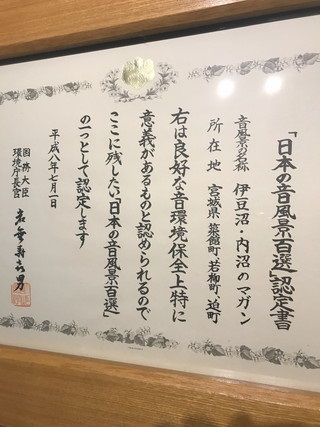 「日本の音風景百選」認定書
音風景の名称 伊豆沼・内沼のマガン
所在地 宮城県 築館町、若柳町、迫町
右は良好な音環境保全上特に
意義があるものと認められるので
ここに残したい「日本の音風景百選」
の一つとして認定します
平成八年七月一日
国務大臣
環境庁長官 岩垂寿喜男